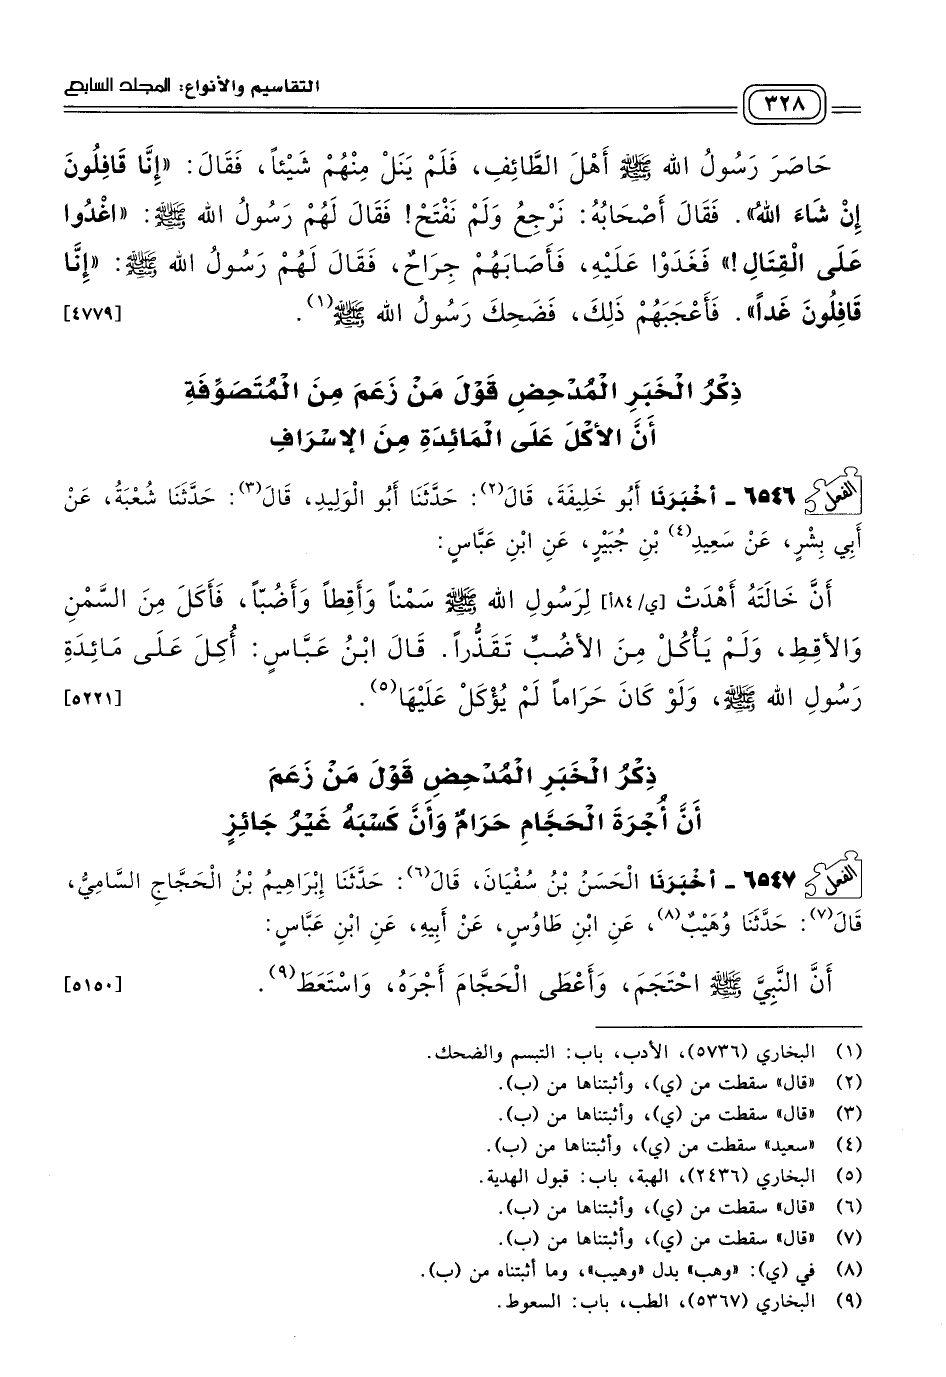 التقاسيم والأنواع: المجلد السابع
٣٢٨
حَاصَرَ رَسُولُ الله ﷺ أَهْلَ الطَّائِفِ، فَلَمْ يَنَلْ مِنْهُمْ شَيْئاً، فَقَالَ: «إِنَّا قَافِلُونَ
إِنْ شَاءَ اللهُ». فَقَالَ أَصْحَابُهُ: نَرْجِعُ وَلَمْ نَفْتَحْ! فَقَالَ لَهُمْ رَسُولُ الله ﷺ: «اغْدُوا
عَلَى الْقِتَالِ!» فَغَدَوْا عَلَيْهِ، فَأَصَابَهُمْ جِرَاحٌ، فَقَالَ لَهُمْ رَسُولُ الله ﷺ: «إِنَّا
قَافِلُونَ غَداً». فَأَعْجَبَهُمْ ذَلِكَ، فَضَحِكَ رَسُولُ الله ﷺ(١). [٤٧٧٩]
ذِكْرُ الْخَبَرِ الْمُدْحِضِ قَوْلَ مَنْ زَعَمَ مِنَ الْمُتَصَوِّفَةِ
أَنَّ الأَكْلَ عَلَى الْمَائِدَةِ مِنَ الإِسْرَافِ
الفعل ٦٥٤٦ - أَخْبَرَنَا أَبُو خَلِيفَةَ، قَالَ(٢): حَدَّثَنَا أَبُو الْوَلِيدِ، قَالَ(٣): حَدَّثَنَا شُعْبَةُ، عَنْ
أَبِي بِشْرٍ، عَنْ سَعِيدِ(٤) بْنِ جُبَيْرٍ، عَنِ ابْنِ عَبَّاسٍ:
أَنَّ خَالَتَهُ أَهْدَتْ [ي/٨٤أ] لِرَسُولِ الله ﷺ سَمْناً وَأَقِطاً وَأَضُبّاً، فَأَكَلَ مِنَ السَّمْنِ
وَالأَقِطِ، وَلَمْ يَأْكُلْ مِنَ الأَضُبِّ تَقَذُّراً. قَالَ ابْنُ عَبَّاسٍ: أُكِلَ عَلَى مَائِدَةِ
رَسُولِ الله ﷺ، وَلَوْ كَانَ حَرَاماً لَمْ يُؤْكَلْ عَلَيْهَا(٥). [٥٢٢١]
ذِكْرُ الْخَبَرِ الْمُدْحِضِ قَوْلَ مَنْ زَعَمَ
أَنَّ أُجْرَةَ الْحَجَّامِ حَرَامٌ وَأَنَّ كَسْبَهُ غَيْرُ جَائِزٍ
الفعل ٦٥٤٧ - أَخْبَرَنَا الْحَسَنُ بْنُ سُفْيَانَ، قَالَ(٦): حَدَّثَنَا إِبْرَاهِيمُ بْنُ الْحَجَّاجِ السَّامِيُّ،
قَالَ(٧): حَدَّثَنَا وُهَيْبٌ(٨)، عَنِ ابْنِ طَاوُسٍ، عَنْ أَبِيهِ، عَنِ ابْنِ عَبَّاسٍ:
أَنَّ النَّبِيَّ ﷺ احْتَجَمَ، وَأَعْطَى الْحَجَّامَ أَجْرَهُ، وَاسْتَعَطَ(٩). [٥١٥٠]
(١) البخاري (٥٧٣٦)، الأدب، باب: التبسم والضحك.
(٢) «قال» سقطت من (ي)، وأثبتناها من (ب).
(٣) «قال» سقطت من (ي)، وأثبتناها من (ب).
(٤) «سعيد» سقطت من (ي)، وأثبتناها من (ب).
(٥) البخاري (٢٤٣٦)، الهبة، باب: قبول الهدية.
(٦) «قال» سقطت من (ي)، وأثبتناها من (ب).
(٧) «قال» سقطت من (ي)، وأثبتناها من (ب).
(٨) في (ي): «وهب» بدل «وهيب»، وما أثبتناه من (ب).
(٩) البخاري (٥٣٦٧)، الطب، باب: السعوط.